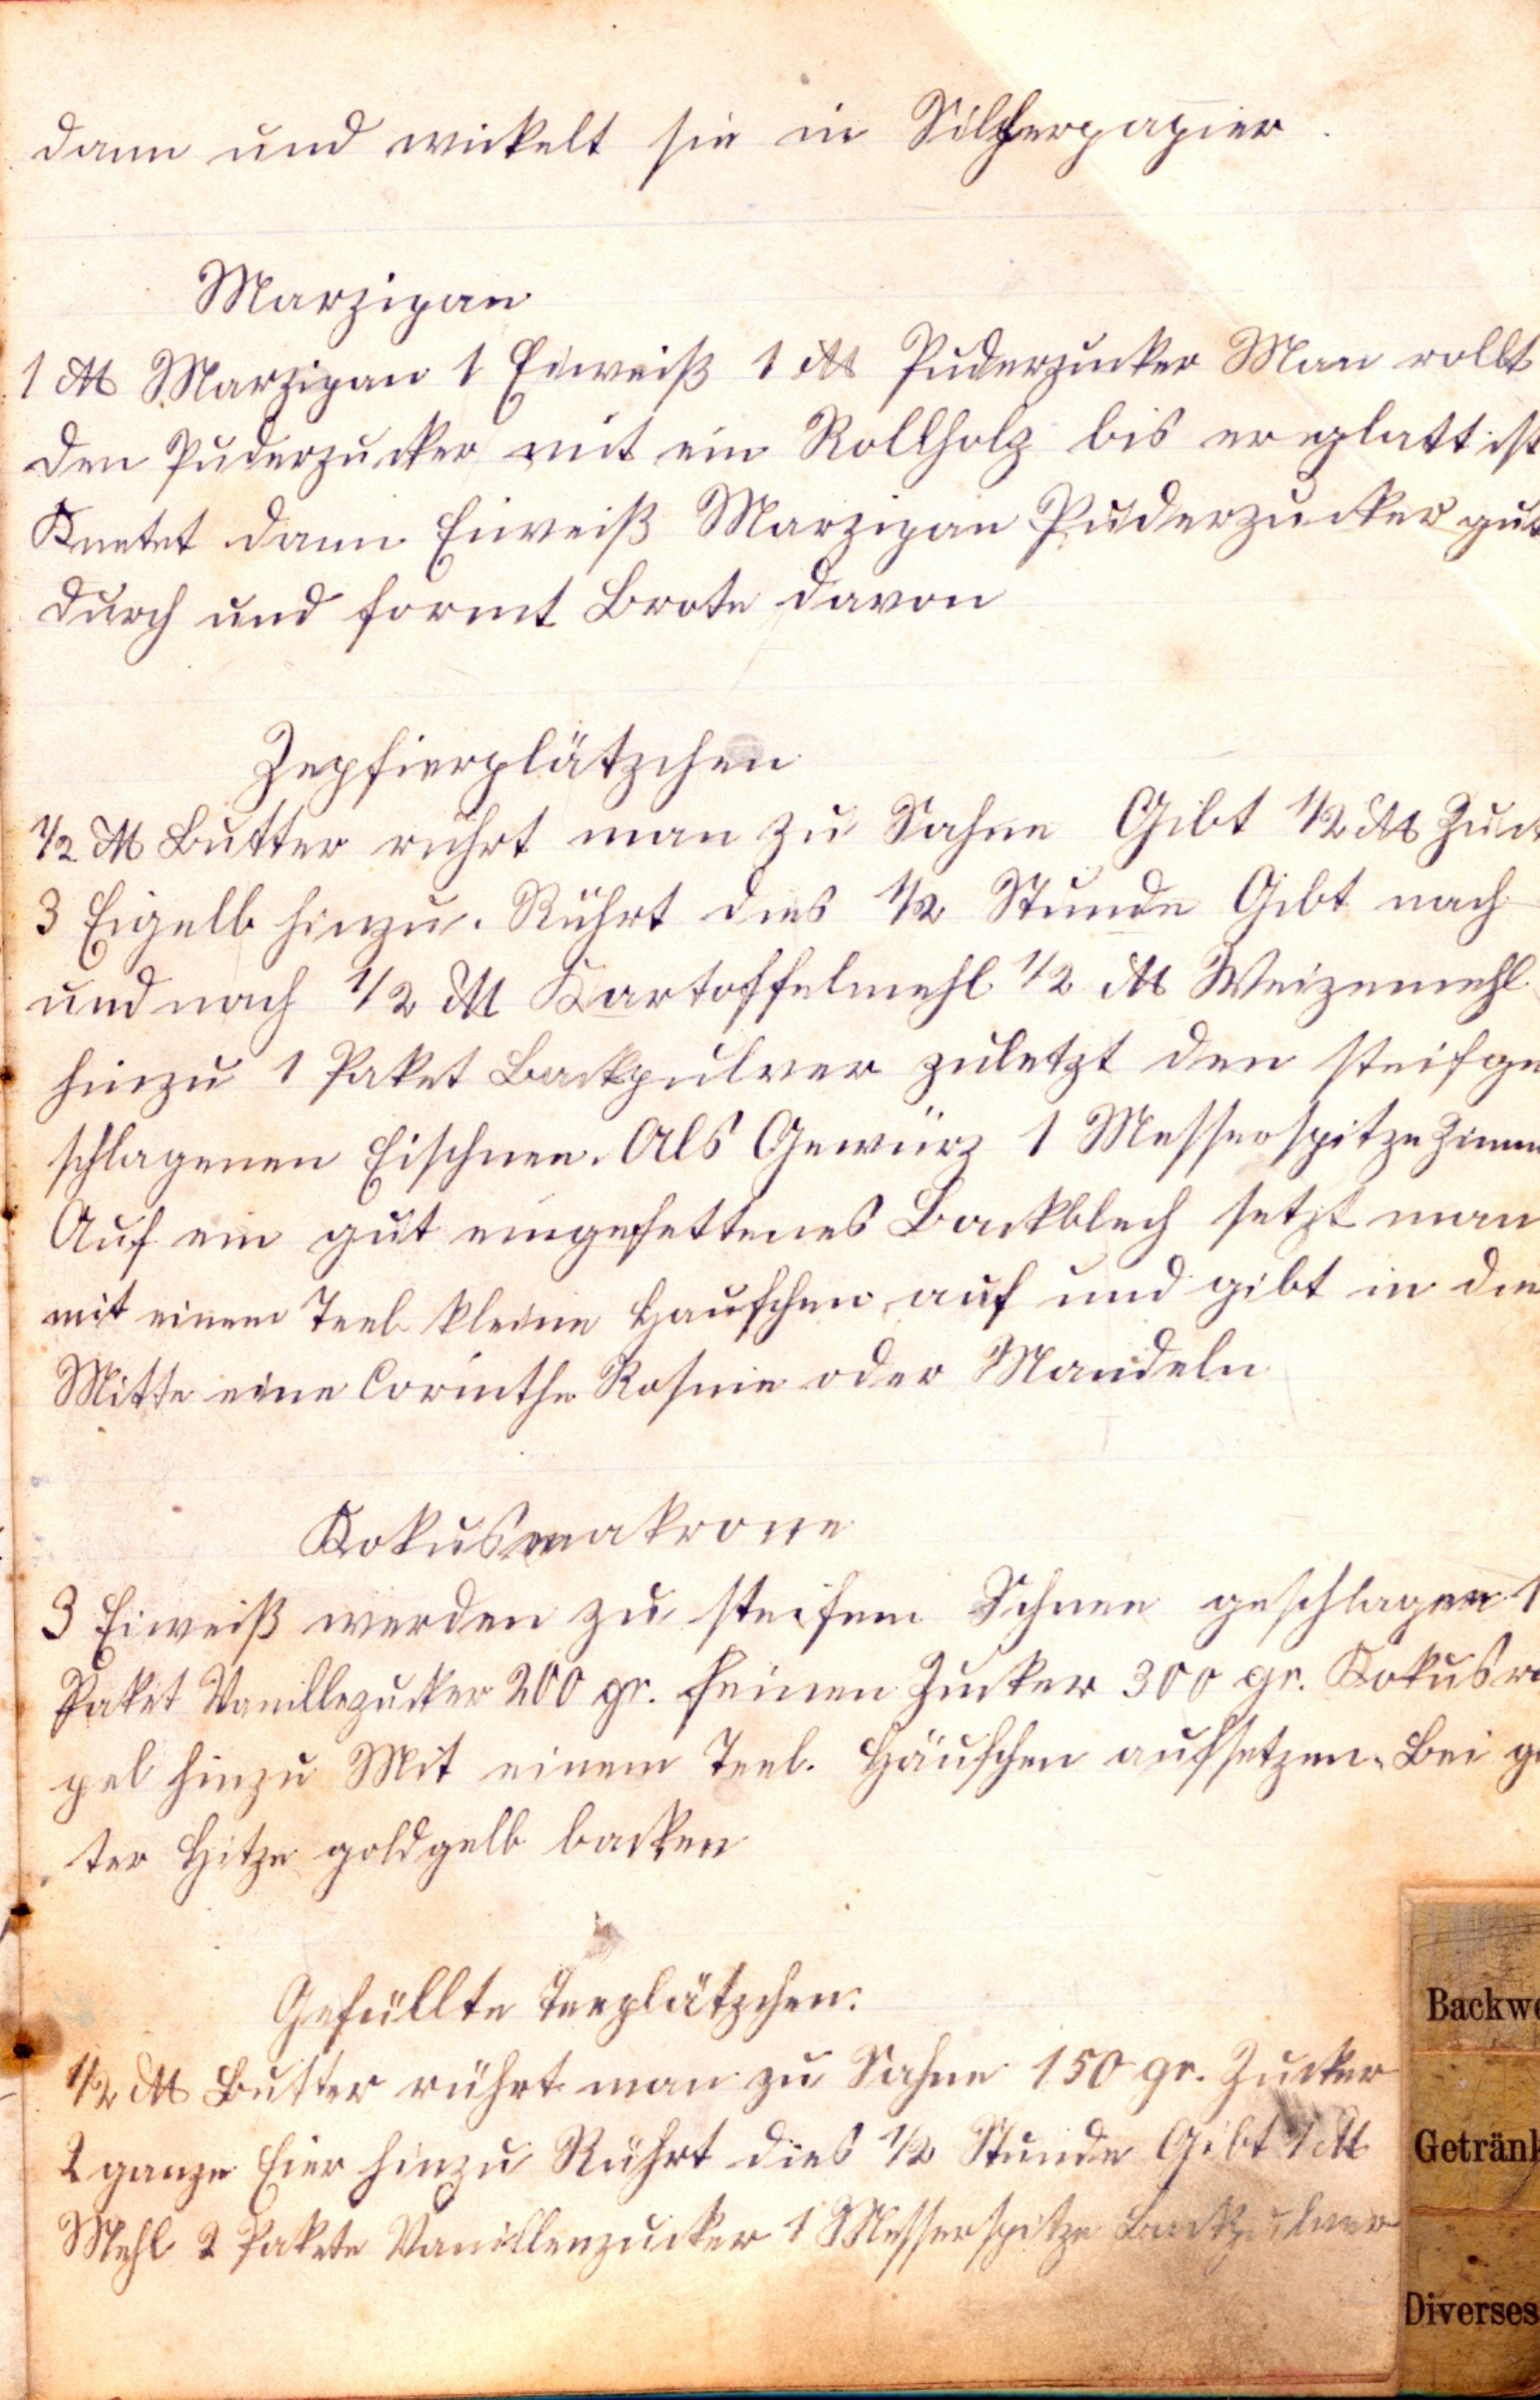 dann und wickelt sie in Silberpapier.
Marzipan
1 ℔ Marzipan 1 Eiweiß 1 ℔ Puderzucker Man rollt
den Puderzucker mit ein Rollholz bis er glatt ist
Knetet dann Eiweiß Marzipan Puderzucker gut
durch und formt Brote davon
Zepfierplätzchen
1/2 ℔ Butter rührt man zu Sahne Gibt 1/2 ℔ Zuck
3 Eigelb hinzu. Rührt dies 1/2 Stunde Gibt nach
und nach 1/2 ℔ Kartoffelmehl 1/2 ℔ Weizenmehl
hinzu 1 Paket Backpulver zuletzt den steifge
schlagenen Eischnee. Als Gewürz 1 Messerspitze Zimm
Auf ein gut eingefettenes Backblech setzt man
mit einem Teel kleine Haufchen auf und gibt in die
Mitte eine Corinthe Rosine oder Mandeln
Kokusmakrone
3 Eiweiß werden zu steifem Schnee geschlagen 1
Paket Vanillezucker 200 gr. feinen Zucker 300 gr. Kokusra
pel hinzu Mit einem Teel. Häufchen aufsetzen. Bei gu
ter Hitze goldgelb backen
Gefüllte Teeplätzchen:
1/2 ℔ Butter rührt man zu Sahne 150 gr. Zucker
2 ganze Eier hinzu Rührt dies 1/2 Stunde Gibt 1 ℔
Mehl 2 Pakete Vanillenzucker 1 Messerspitze Backpulver
Backwe
Getränk
Diverses